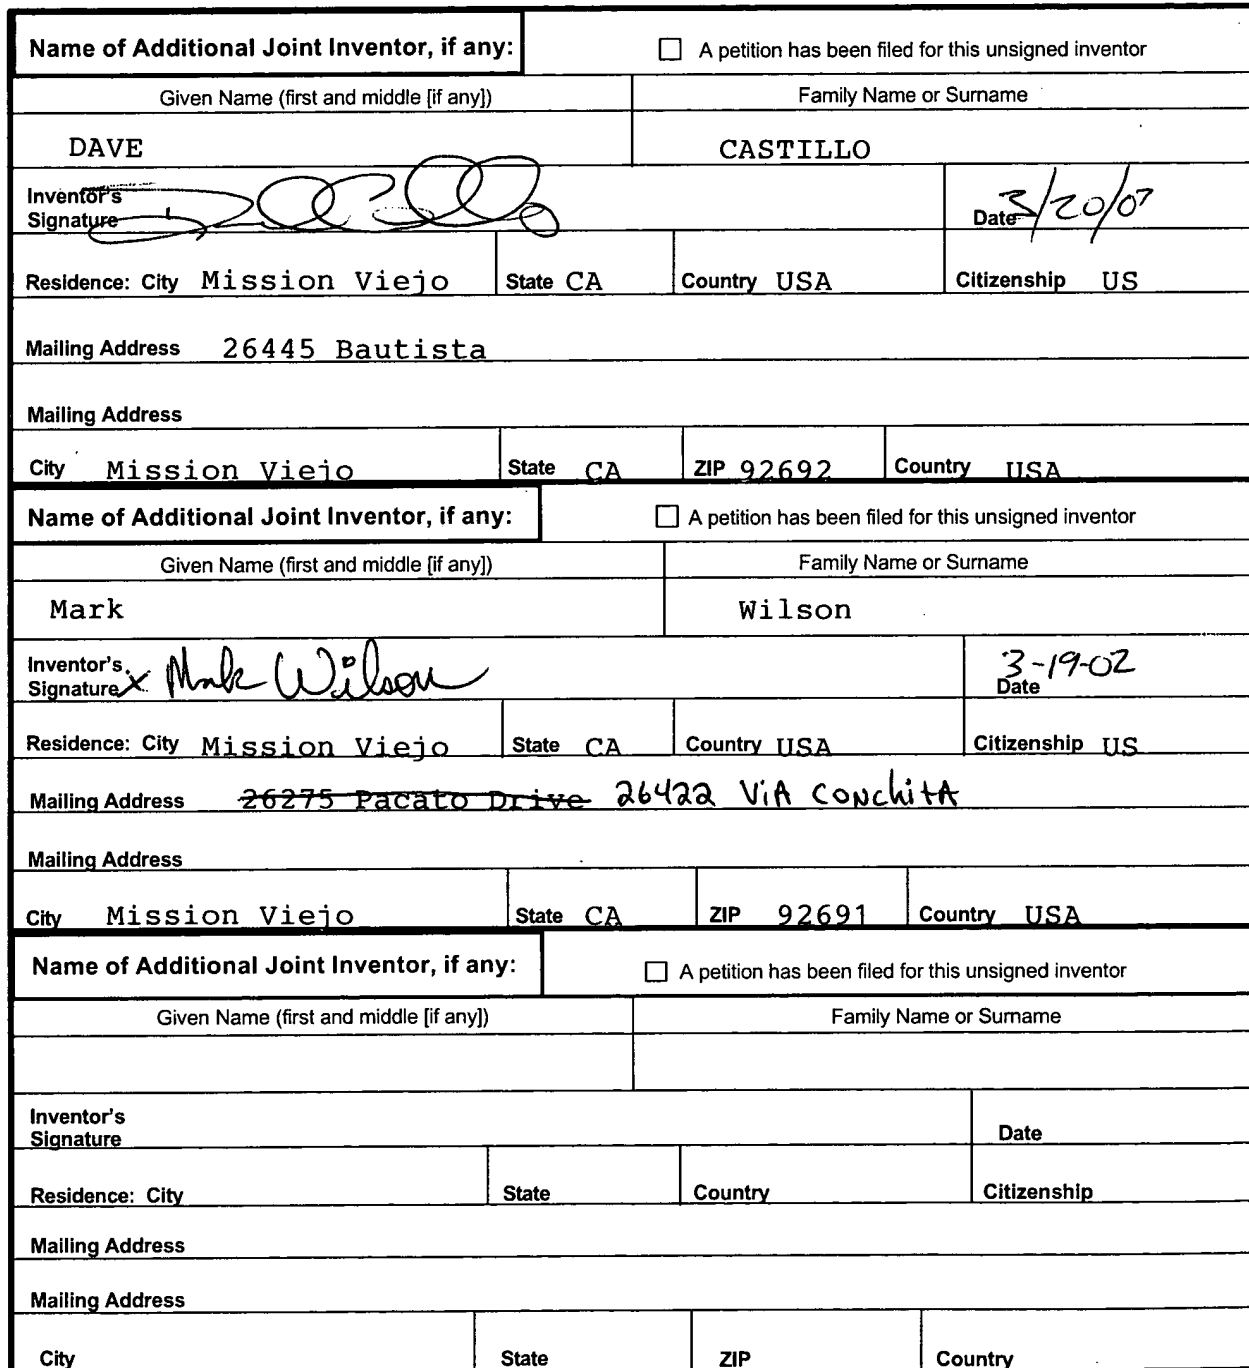 Name of Additional Joint Inventor, if any: ☐ A petition has been filed for this unsigned inventor
Given Name (first and middle [if any]) Family Name or Surname
DAVE CASTILLO
Inventor's
Signature Date 3/20/02
Residence: City Mission Viejo State CA Country USA Citizenship US
Mailing Address 26445 Bautista
Mailing Address
City Mission Viejo State CA ZIP 92692 Country USA
Name of Additional Joint Inventor, if any: ☐ A petition has been filed for this unsigned inventor
Given Name (first and middle [if any]) Family Name or Surname
Mark Wilson
Inventor's
Signature X Mark Wilson Date 3-19-02
Residence: City Mission Viejo State CA Country USA Citizenship US
Mailing Address 26275 Pacato Drive 26422 ViA CoNchitA
Mailing Address
City Mission Viejo State CA ZIP 92691 Country USA
Name of Additional Joint Inventor, if any: ☐ A petition has been filed for this unsigned inventor
Given Name (first and middle [if any]) Family Name or Surname
Inventor's
Signature Date
Residence: City State Country Citizenship
Mailing Address
Mailing Address
City State ZIP Country